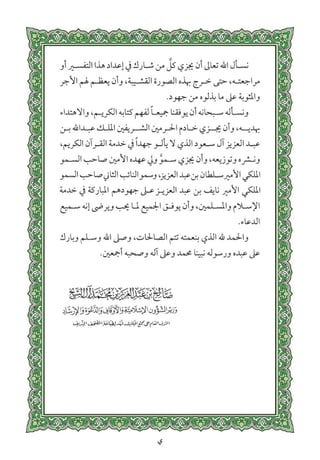 نسـأل الله تعالى أن يجزي كلَّ من شـارك في إعداد هذا التفسـير أو
مراجعتـه، حتى خـرج بهذه الصورة القشـيبة، وأن يعظـم لهم الأجر
والمثوبة على ما بذلوه من جهود.
ونسـأله سـبحانه أن يوفقنا جميعـاً لفهم كتابه الكريـم، والاهتداء
بهديـه، وأن يجـزي خـادم الحرمين الشـريفين الملـك عبـدالله بـن
عبـد العزيز آل سـعود الذي لا يألـو جهداً في خدمة القـرآن الكريم،
ونشره وتوزيعه، وأن يجزي سـموَّ ولي عهده الأمين صاحب السـمو
الملكي الأمير سـلطان بن عبد العزيز، وسمو النائب الثاني صاحب السمو
الملكي الأمير نايف بن عبد العزيـز عـلى جهودهم المباركة في خدمة
الإسـلام والمسـلمين، وأن يوفـق الجميع لمـا يجب ويرضى إنه سـميع
الدعاء.
والحمد لله الذي بنعمته تتم الصالحات، وصلى الله وسـلم وبارك
على عبده ورسوله نبينا محمد وعلى آله وصحبه أجمعين.
صالح بن عبد العزيز بن محمد آل الشيخ
وزير الشؤون الإسلامية والأوقاف والدعوة والإرشاد
المشرف العام على مجمع الملك فهد لطباعة المصحف الشريف
ي